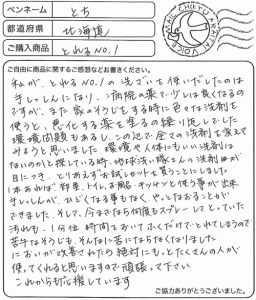 ペンネーム とち
都道府県 北海道
ご購入商品 とれるNO.1
MAIL CHIKYU ARAITAI VOICE
ご自由に商品に関するご感想などお書きください。
私が、とれるNO.1の洗ざいを使いだしたのは
手しっしんになり、病院の薬で少しは良くなるの
ですが、また家のそうじをする時に色々な洗剤を
使うと、悪化する薬を塗るの繰り返しでした
環境問題もあるし、この辺で全ての洗剤を変えて
みようと思いました。環境や人体にもいい洗剤は
ないのかと探している時、地球洗い隊さんの洗剤が
目につき、とりあえずお試しセットを買うことにしました
1本あれば部屋、トイレ、お風呂、キッチンと使う事が出来
手しっしんが、ひどくなる事もなく、やっとなおることが
できました。そして、今までなら何度もスプレーしてとっていた
汚れも、1分位時間をおいてふくだけでとれてしまうので
苦手なそうじも、そんなに苦にはならなくなりました
においが改善されたら絶対にもっとたくさんの人が
使ってくれると思いますので頑張って下さい
これからも応援しています
ご協力ありがとうございました。